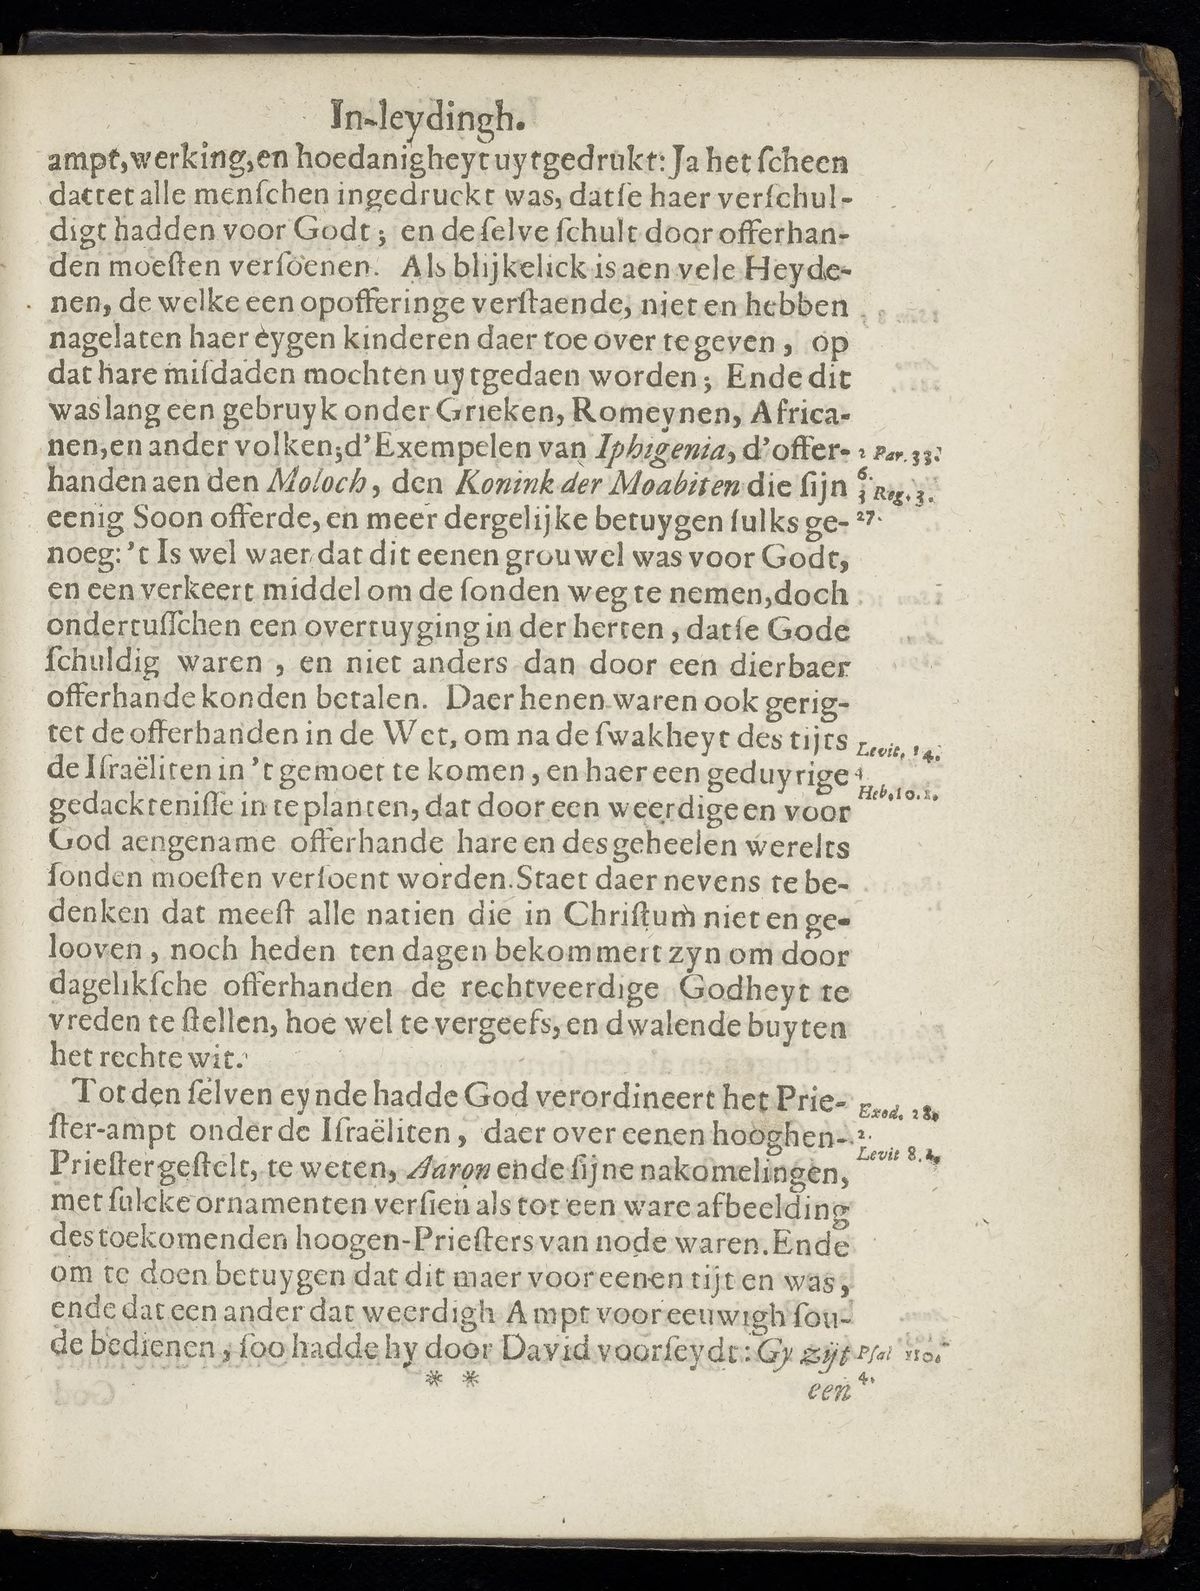 In-leydingh.
ampt, werking, en hoedanigheyt uytgedrukt: Ja het ſcheen
dattet alle menſchen ingedruckt was, datſe haer verſchul-
digt hadden voor Godt; en de ſelve ſchult door offerhan-
den moeſten verſoenen. Als blijkelick is aen vele Heyde-
nen, de welke een opofferinge verſtaende, niet en hebben
nagelaten haer eygen kinderen daer toe over te geven, op
dat hare miſdaden mochten uytgedaen worden; Ende dit
was lang een gebruyk onder Grieken, Romeynen, Africa-
nen, en ander volken; d'Exempelen van Iphigenia, d'offer-
2 Par. 33.
6.
handen aen den Moloch, den Konink der Moabiten die ſijn
3 Reg. 3.
27.
eenig Soon offerde, en meer dergelijke betuygen ſulks ge-
noeg: 't Is wel waer dat dit eenen grouwel was voor Godt,
en een verkeert middel om de ſonden weg te nemen, doch
ondertuſſchen een overtuyging in der herten, datſe Gode
ſchuldig waren, en niet anders dan door een dierbaer
offerhande konden betalen. Daer henen waren ook gerig-
tet de offerhanden in de Wet, om na de ſwakheyt des tijts
Levit. 14.
4.
de Iſraëliten in 't gemoet te komen, en haer een geduyrige
Heb. 10. 1.
gedackteniſſe in te planten, dat door een weerdige en voor
God aengename offerhande hare en des geheelen werelts
ſonden moeſten verſoent worden. Staet daer nevens te be-
denken dat meeſt alle natien die in Chriſtum niet en ge-
looven, noch heden ten dagen bekommert zyn om door
dagelikſche offerhanden de rechtveerdige Godheyt te
vreden te ſtellen, hoe wel te vergeefs, en dwalende buyten
het rechte wit.
Tot den ſelven eynde hadde God verordineert het Prie-
Exod. 28.
2.
ſter-ampt onder de Iſraëliten, daer over eenen hooghen-
Levit 8. 2.
Prieſter geſtelt, te weten, Aaron ende ſijne nakomelingen,
met ſulcke ornamenten verſien als tot een ware afbeelding
des toekomenden hoogen-Prieſters van node waren. Ende
om te doen betuygen dat dit maer voor eenen tijt en was,
ende dat een ander dat weerdigh Ampt voor eeuwigh ſou-
de bedienen, ſoo hadde hy door David voorſeydt: Gy zijt
Pſal 110.
4.
* * een